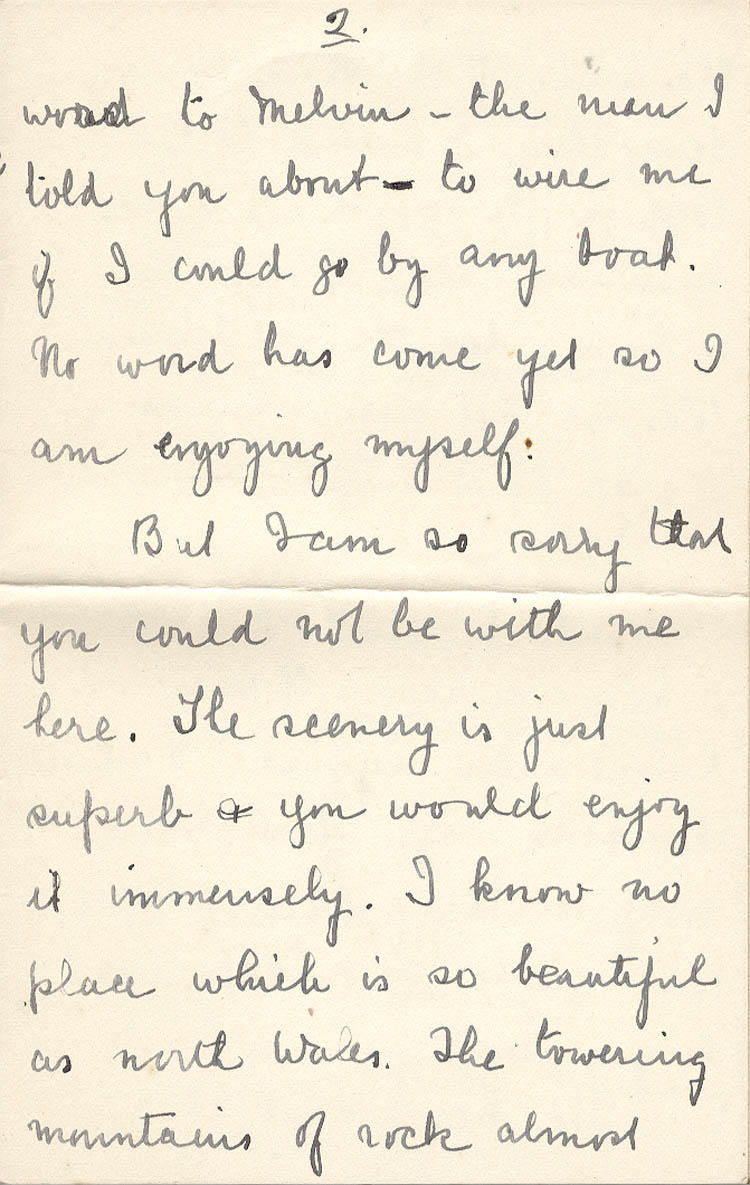 2.
word to Melvin - the man I
told you about - to wire me
if I could go by any boat.
No word has come yet so I
am enjoying myself.
But I am so sorry that
you could not be with me
here. The scenery is just
superb & you would enjoy
it immensely. I know no
place which is so beautiful
as north Wales. The towering
mountains of rock almost